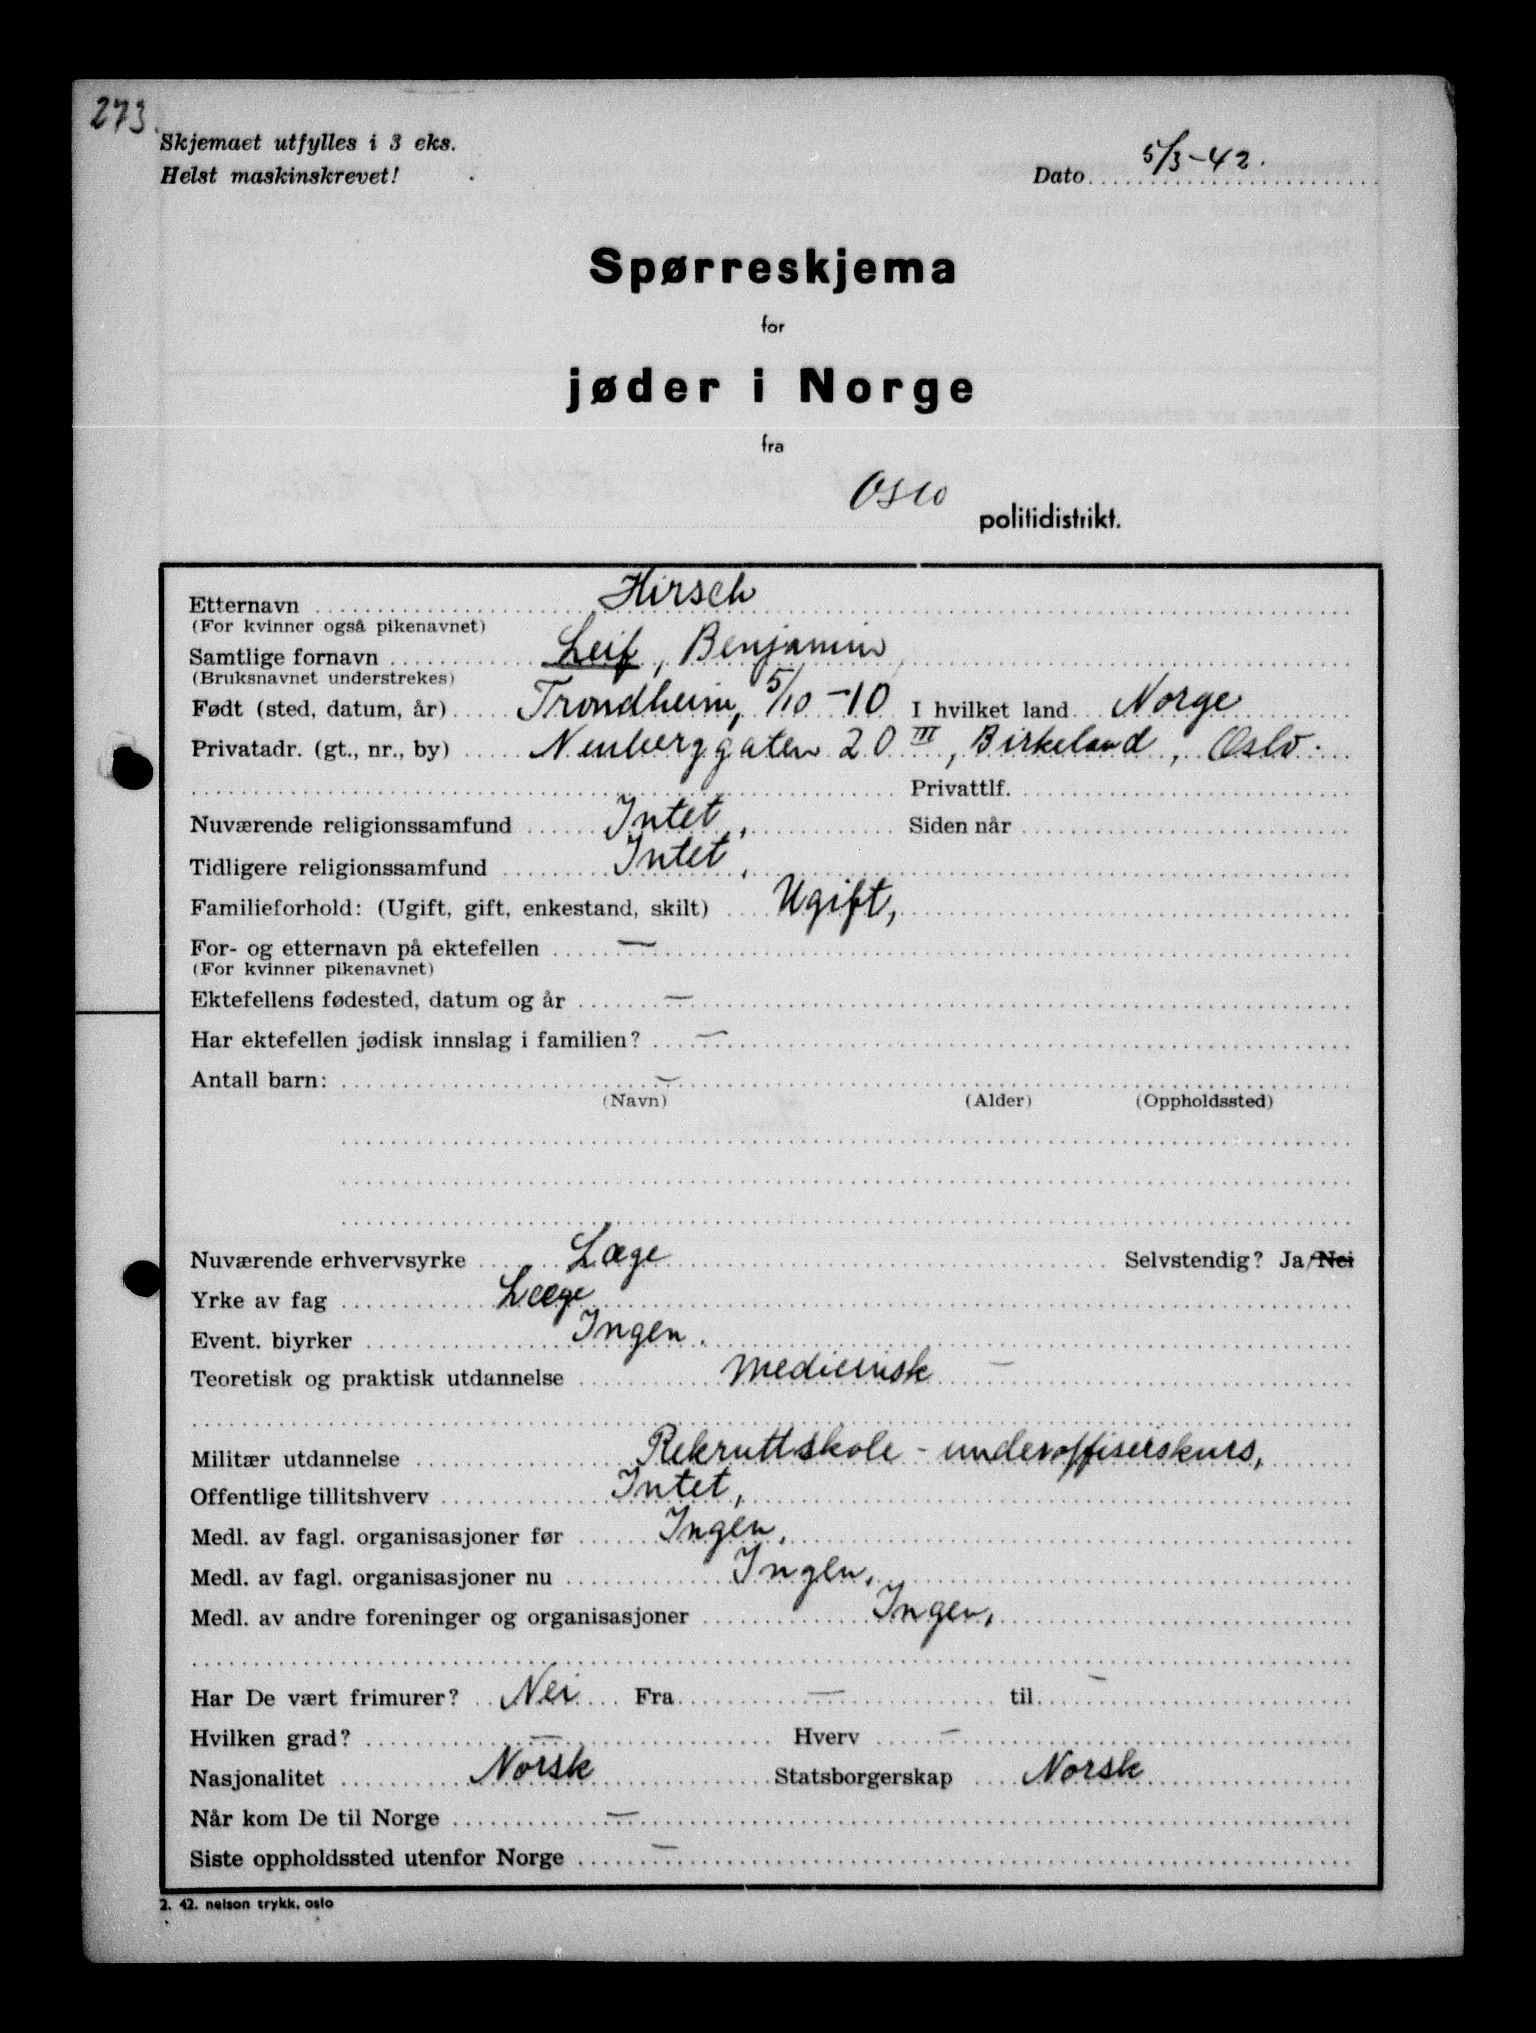 273.
Skjemaet utfylles i 3 eks.
Helst maskinskrevet!
Dato 5/3-42.
Spørreskjema
for
jøder i Norge
fra
Oslo politidistrikt.
Etternavn Hirsch
(For kvinner også pikenavnet)
Samtlige fornavn Leif, Benjamin
(Bruksnavnet understrekes)
Født (sted, datum, år) Trondheim, 5/10-10 I hvilket land Norge
Privatadr. (gt., nr., by) Neuberggaten 20 III, Birkeland, Oslo.
Privattlf.
Nuværende religionssamfund Intet, Siden når
Tidligere religionssamfund Intet,
Familieforhold: (Ugift, gift, enkestand, skilt) Ugift,
For- og etternavn på ektefellen —
(For kvinner pikenavnet)
Ektefellens fødested, datum og år —
Har ektefellen jødisk innslag i familien? —
Antall barn: —
(Navn) (Alder) (Oppholdssted)
Nuværende erhvervsyrke Læge Selvstendig? Ja/Nei
Yrke av fag Læge
Event. biyrker Ingen.
Teoretisk og praktisk utdannelse Medicinsk —
Militær utdannelse Rekruttskole - underoffiserskurs,
Offentlige tillitshverv Intet,
Medl. av fagl. organisasjoner før Ingen,
Medl. av fagl. organisasjoner nu Ingen,
Medl. av andre foreninger og organisasjoner Ingen,
Har De vært frimurer? Nei Fra — til —
Hvilken grad? — Hverv —
Nasjonalitet Norsk Statsborgerskap Norsk
Når kom De til Norge —
Siste oppholdssted utenfor Norge —
2. 42. nelson trykk, oslo